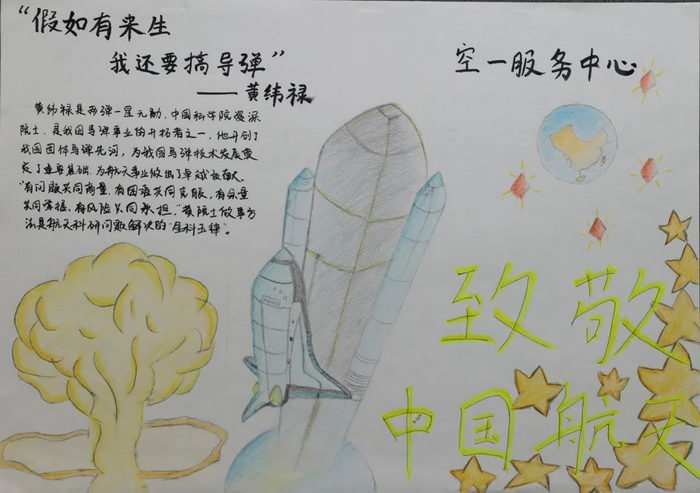 “假如有来生
我还要搞导弹”
——黄纬禄
空一服务中心
黄纬禄是两弹一星元勋,中国科学院资深
院士,是我国导弹事业的开拓者之一,他开创了
我国固体导弹先河,为我国导弹技术发展奠
定了连基础,为航天事业做出了卓越贡献。
“有问题共同商量,有困难共同克服,有余量
共同掌握,有风险共同承担。”黄院士做事方
法是航天科研问题解决的“金科玉律”。
致敬
中国航天